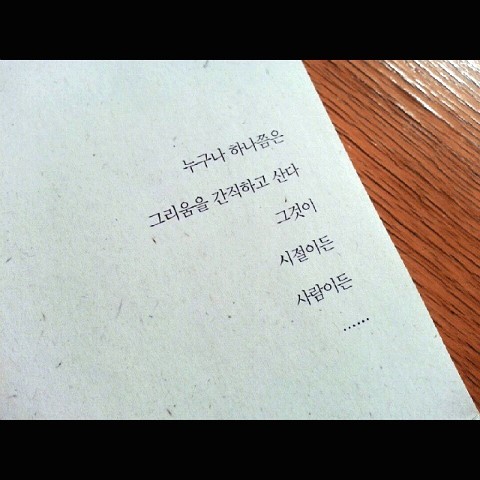 누구나 하나쯤은
그리움을 간직하고 산다
그것이
시절이든
사람이든
......